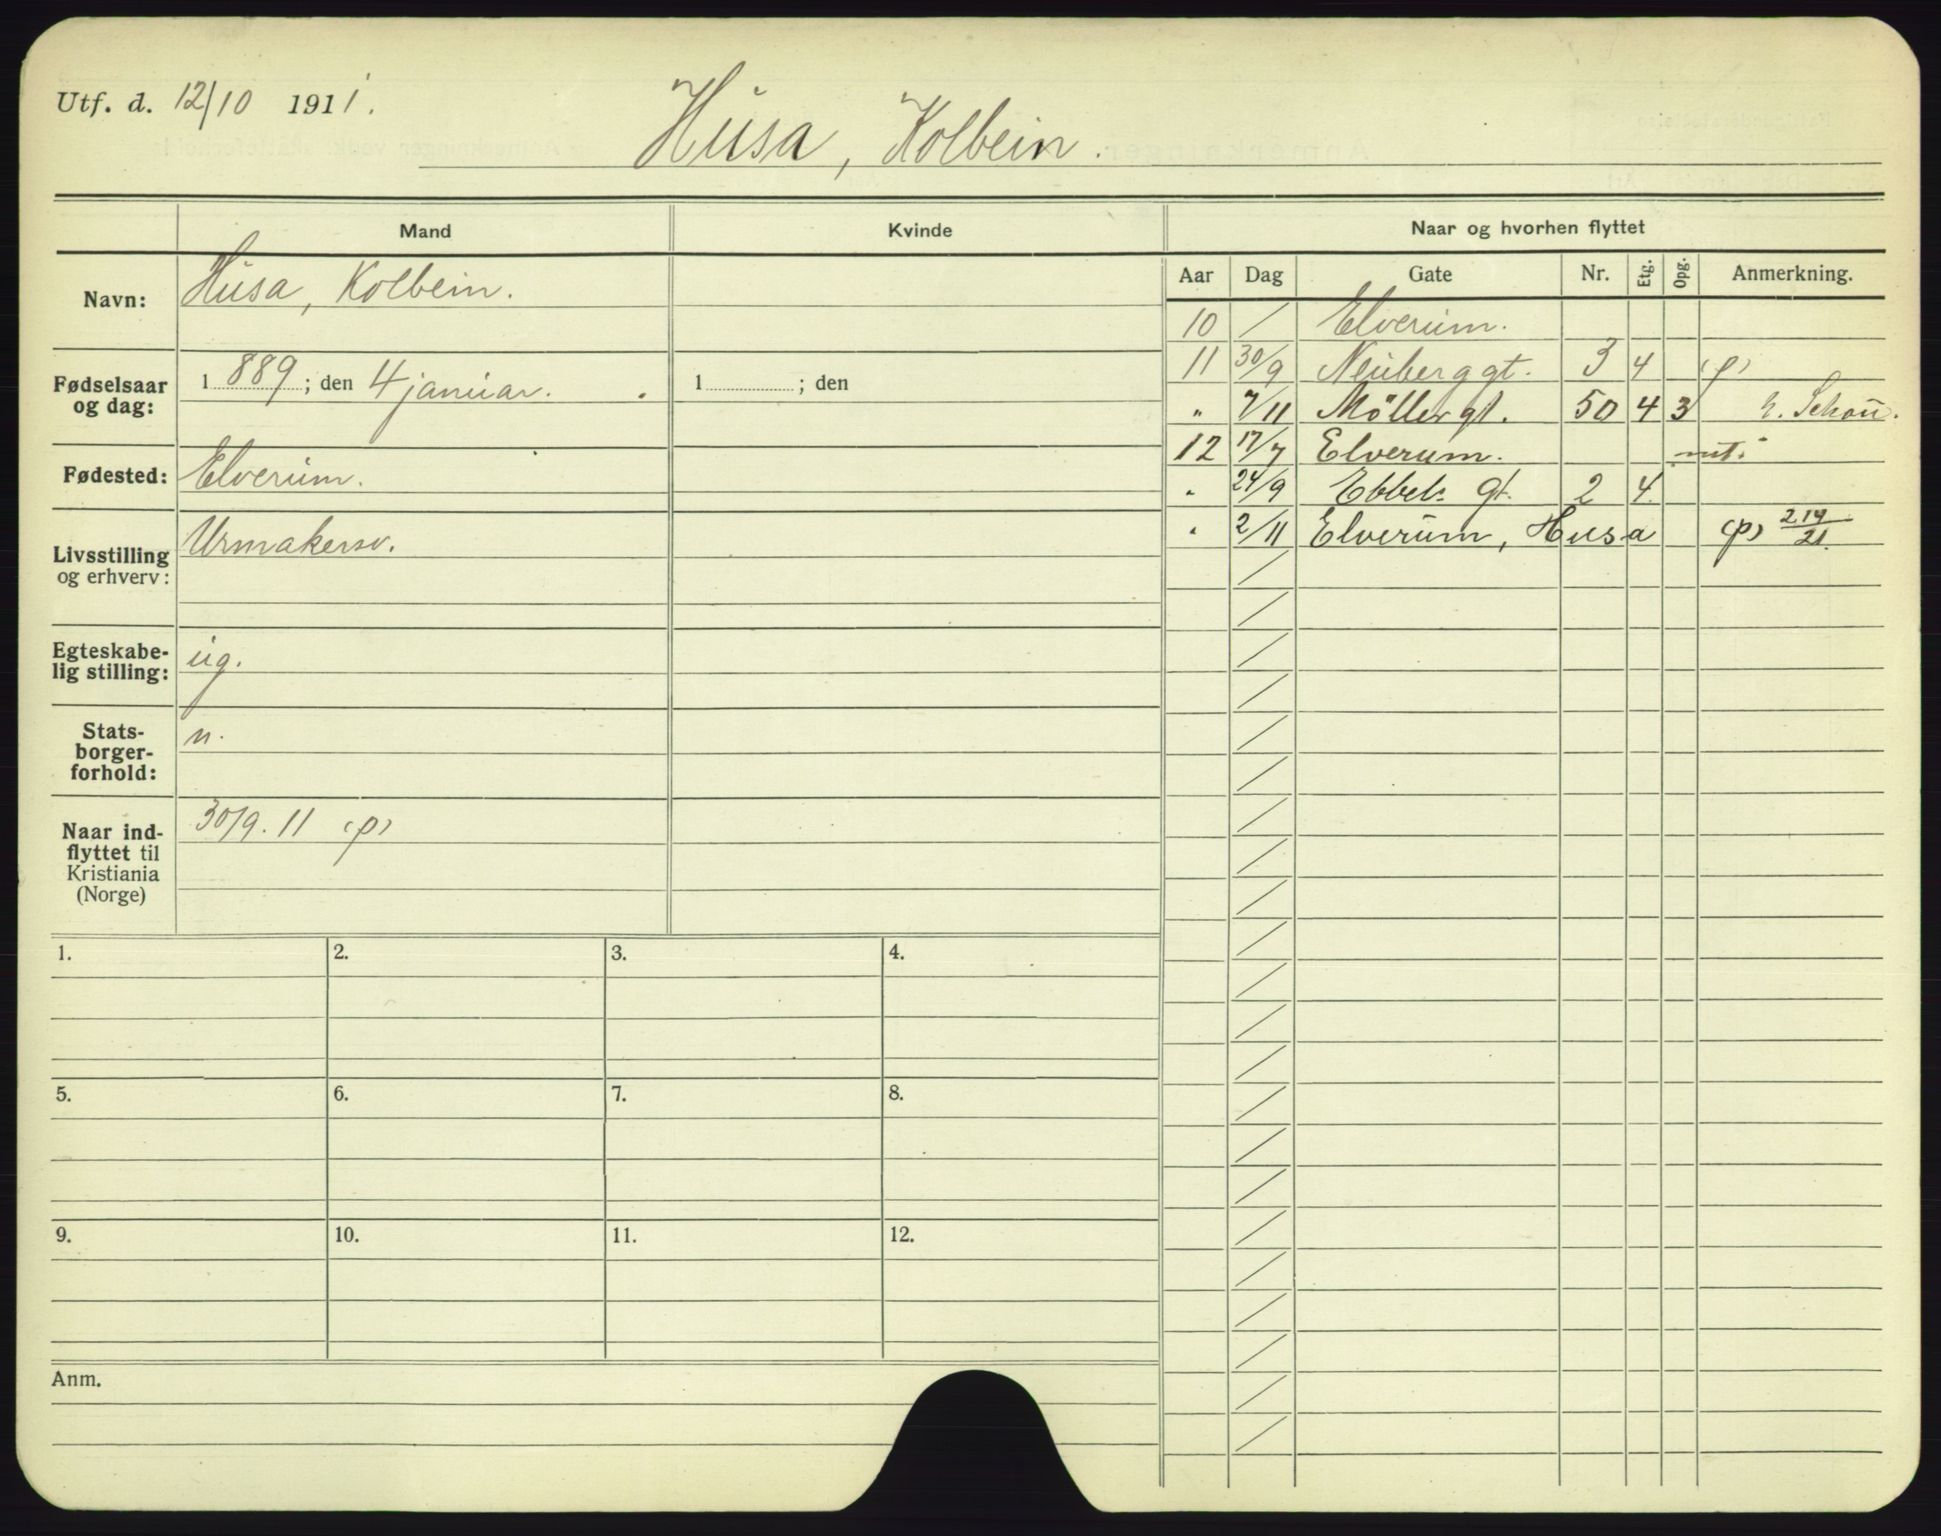 Utf. d. 12/10 1911.
Husa, Kolbein.
Mand
Kvinde
Naar og hvorhen flyttet
Aar Dag Gate Nr. Etg. Opg. Anmerkning.
Navn: Husa, Kolbein.
Fødselsaar og dag: 1889; den 4 januar. 1 ; den
Fødested: Elverum.
Livsstilling og erhverv: Urmakersv.
Egteskabe-
lig stilling: ug.
Stats-
borger-
forhold: n.
Naar ind-
flyttet til
Kristiania
(Norge) 30/9. 11 (p)
10 / Elverum.
11 30/9 Neuberggt. 3 4 (p)
" 7/11 Möllergt. 50 4 3 h. Schou.
12 17/7 Elverum. mt.
" 24/9 Ebbels gt. 2 4
" 2/11 Elverum, Husa (p) 219/21.
1. 2. 3. 4.
5. 6. 7. 8.
9. 10. 11. 12.
Anm.